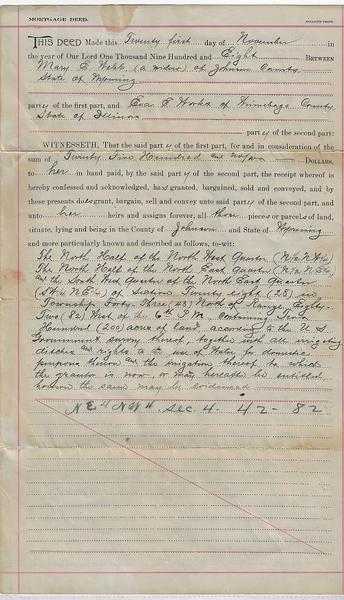 MORTGAGE DEED.
THIS DEED Made this Twenty first day of November in
the year of Our Lord One Thousand Nine Hundred and Eight BETWEEN
Mary E. Webb, (a widow) of Johnson County
State of Wyoming
party of the first part, and Eva F Works of Winnebago County
State of Illinois
party of the second part:
WITNESSETH, That the said party of the first part, for and in consideration of the
sum of Twenty Five Hundred and DOLLARS,
to her in hand paid, by the said party of the second part, the receipt whereof is
hereby confessed and acknowledged, has granted, bargained, sold and conveyed, and by
these presents does grant, bargain, sell and convey unto said party of the second part, and
unto her heirs and assigns forever, all those pieces or parcels of land,
situate, lying and being in the County of Johnson and State of Wyoming
and more particularly known and described as follows, to-wit:
The North Half of the North West Quarter (N½ N.W¼)
The North Half of the North East Quarter (N½ N.E¼)
and the South West Quarter of the North East Quarter
(S.W¼ N.E¼) of Section Twenty eight (28) in
Township Forty Three (43) North of Range Eighty
Two (82) West of the 6th P.M. Containing Two
Hundred (200) acres of land, according to the U.S.
Government survey thereof, together with all irrigating
ditches and rights to use of Water for domestic
purposes thereon and the irrigation thereof to which
the grantor is now, or may hereafter be entitled,
however the same may be evidenced
NE4 NW4 Sec. 4. 42 - 82